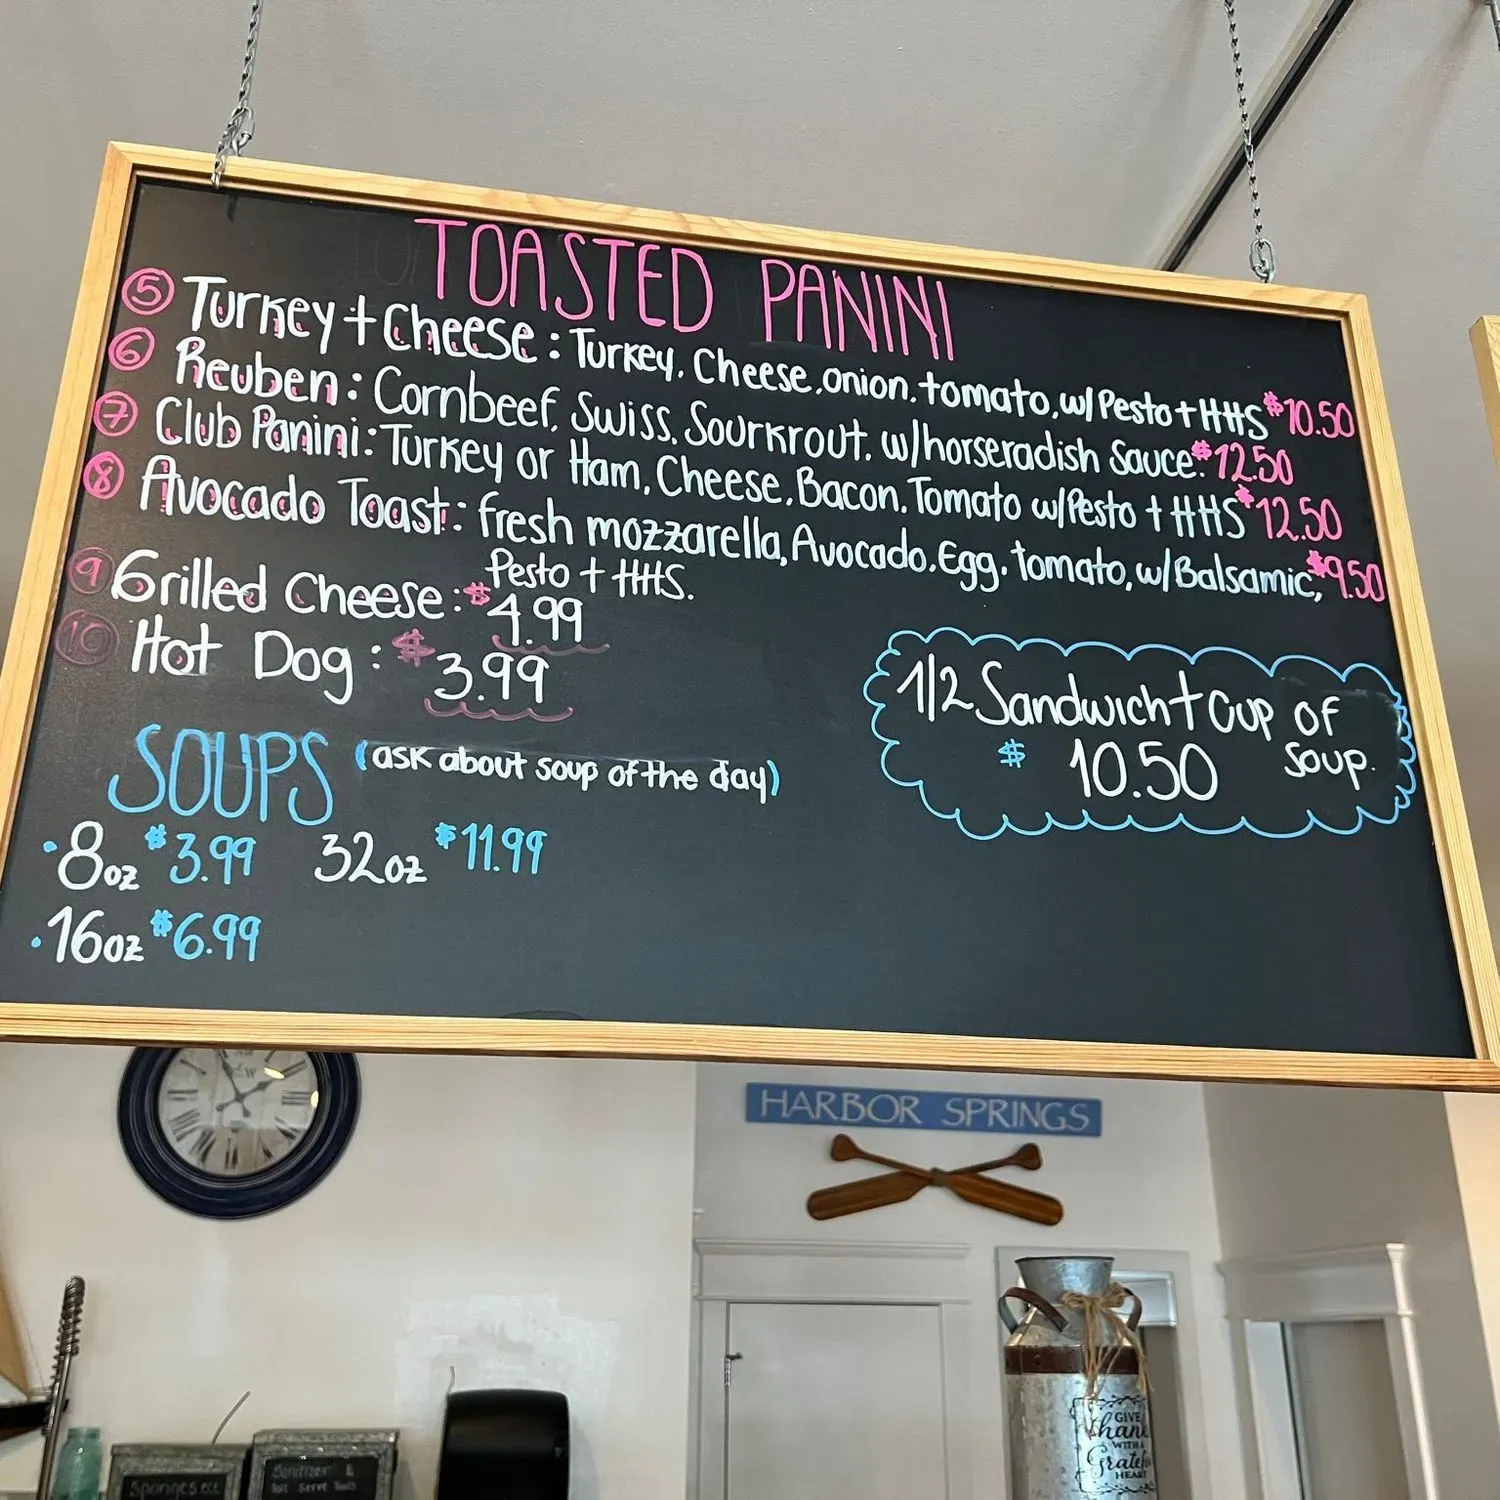 TOASTED PANINI
5 Turkey + Cheese: Turkey, Cheese, onion, tomato, w/ Pesto + HHS $10.50
6 Reuben: Cornbeef, Swiss, Sourkrout, w/horseradish Sauce. $12.50
7 Club Panini: Turkey or Ham, Cheese, Bacon, Tomato w/Pesto + HHS $12.50
8 Avocado Toast: fresh mozzarella, Avocado, Egg, tomato, w/Balsamic, $9.50
Pesto + HHS.
9 Grilled Cheese: $4.99
10 Hot Dog: $3.99
1/2 Sandwich + Cup of
Soup.
$ 10.50
SOUPS (ask about soup of the day)
• 8oz $3.99 32oz $11.99
• 16oz $6.99
HARBOR SPRINGS
GIVE
Thanks
WITH A
Grateful
HEART
Sponges etc
Sanitizer &
Soft Serve Tools